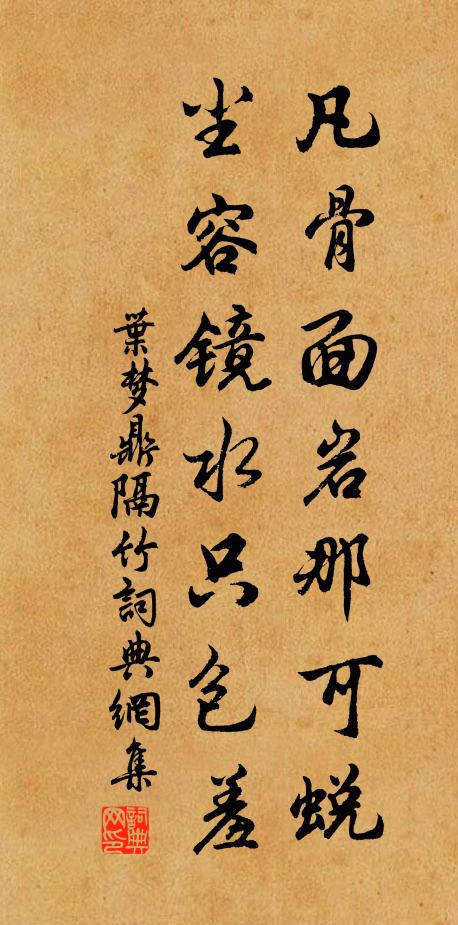 凡骨面岩那可蜕
尘容镜水只包羞
葉梦鼎隔竹詞典網集
詞典網印